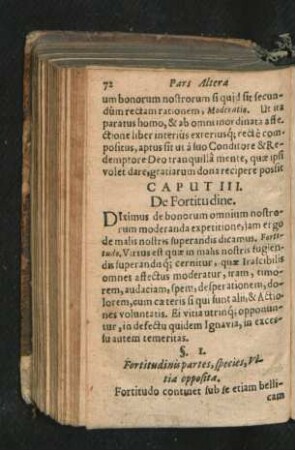 72 Pars Altera
um bonorum nostrorum si quid sit secun-
dùm rectam rationem, Moderatio. Ut ita
paratus homo, & ab omni inordinata affe-
ctione liber interius exteriusq; rectè com-
positus, aptus sit ut à suo Conditore & Re-
demptore Deo tranquillâ mente, quæ ipsi
volet dare, gratiarum dona recipere possit
CAPUT III.
De Fortitudine.
DIximus de bonorum omnium nostro-
rum moderanda expetitione, jam ergo
de malis nostris superandis dicamus. Forti-
tudo, Virtus est quæ in malis nostris fugien-
dis superandisq; cernitur, quæ Irascibilis
omnet affectus moderatur, iram, timo-
rem, audaciam, spem, desperationem, do-
lorem, cum cæteris si qui sunt alii, & Actio-
nes voluntatis. Ei vitia utrinq; opponun-
tur, in defectu quidem Ignavia, in exces-
su autem temeritas.
§. 1.
Fortitudinis partes, species, Vi-
tia opposita.
Fortitudo continet sub se etiam belli-
cam